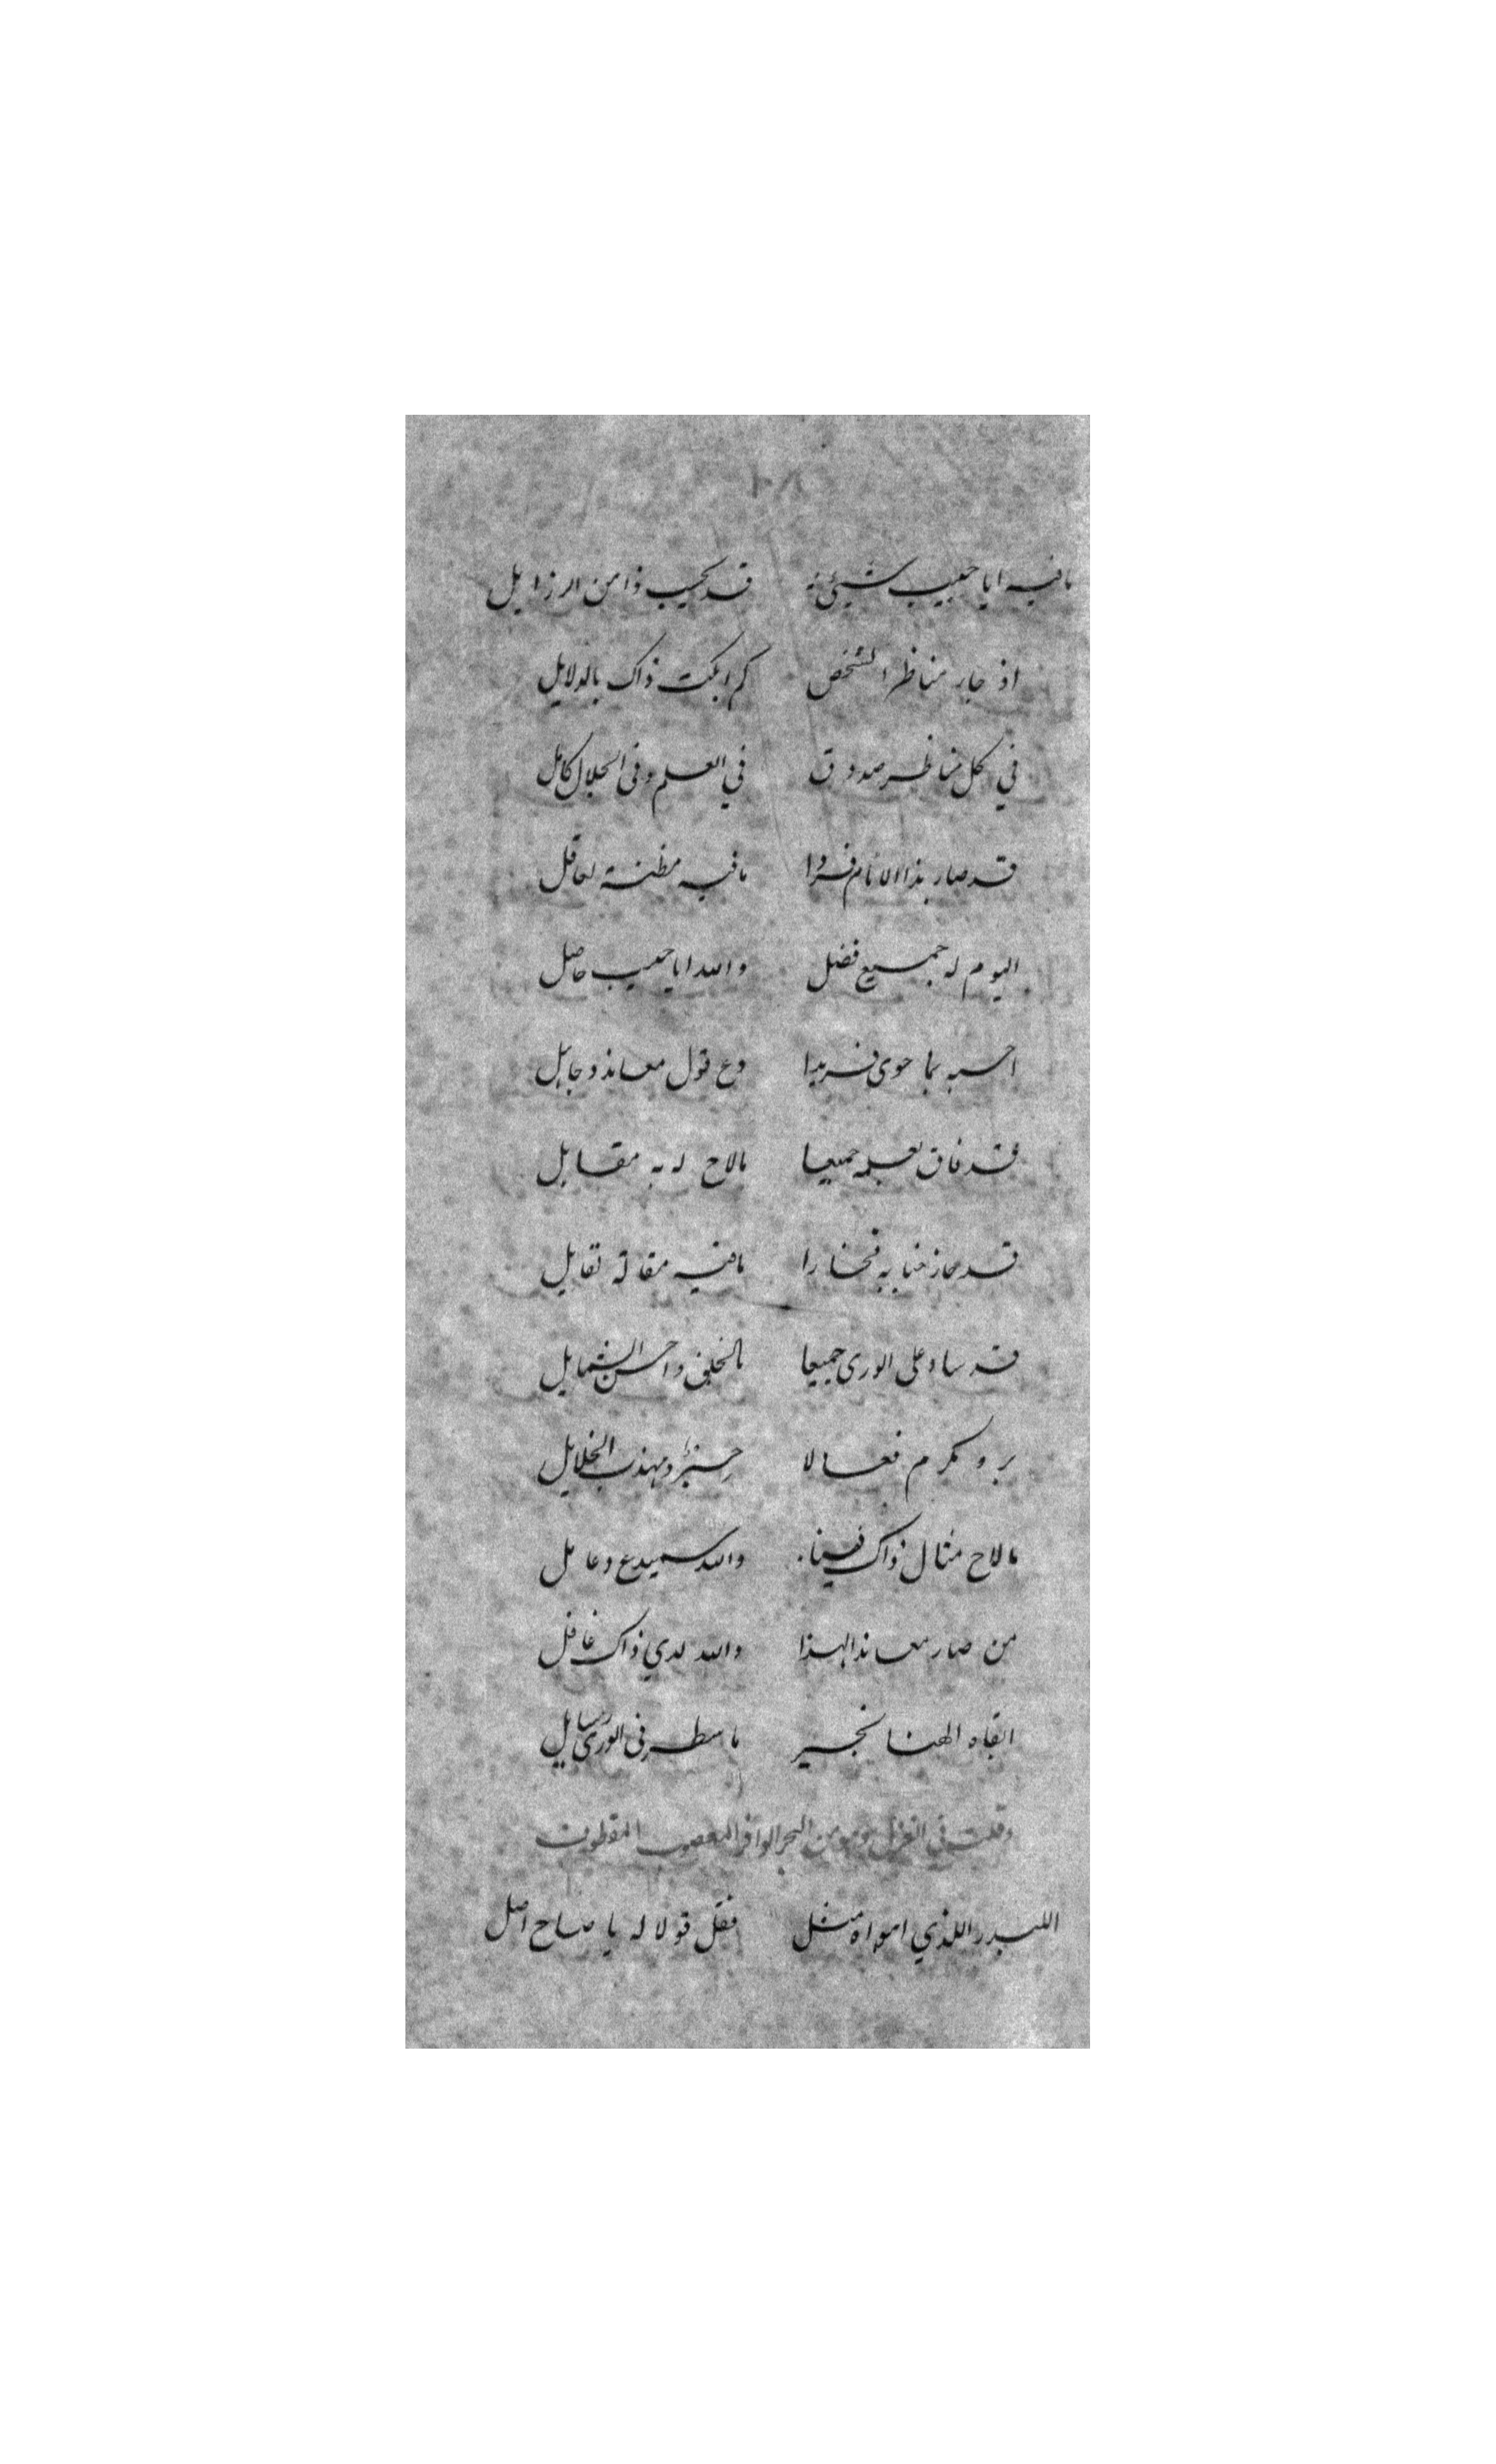 ١٠٨
مافيه ايا حبيب شيئ قد ذا من الرزايل
اذ جار مناظر الشخص كم ابكت ذاك بالدلايل
في كل مناظر صدوق في العلم وفى الجلال كامل
قد صار بذا الانام فردا مافيه مظنة لعاقل
اليوم له جميع فضل والله ايا حبيب حاصل
احسبه بما حوى فريدا دع قول معاند وجاهل
قد فاق بعلمه جميعا مالاح له به مقابل
قد حاز بها به فخارا مافيه مقالة تقايل
قد ساد على الورى جميعا بالخلق واحسن الشمايل
بر ومكرم فعالا ومهذب الخلايل
مالاح مثال ذاك فينا والله سميدع وعامل
من صار معاندا لهذا والله لدي ذاك غافل
ابقاه الهنا بخير ماسطر فى الورى رسايل
وقلت في الغزل وهو من البحر الوافر المعصوب المقطوف
اللبدر اللذي اهواه مثل فقل قولا له يا صاح اصل